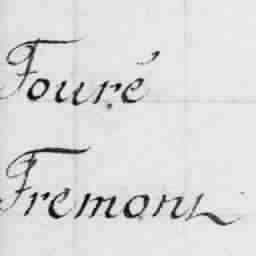 Fouré
Fremont